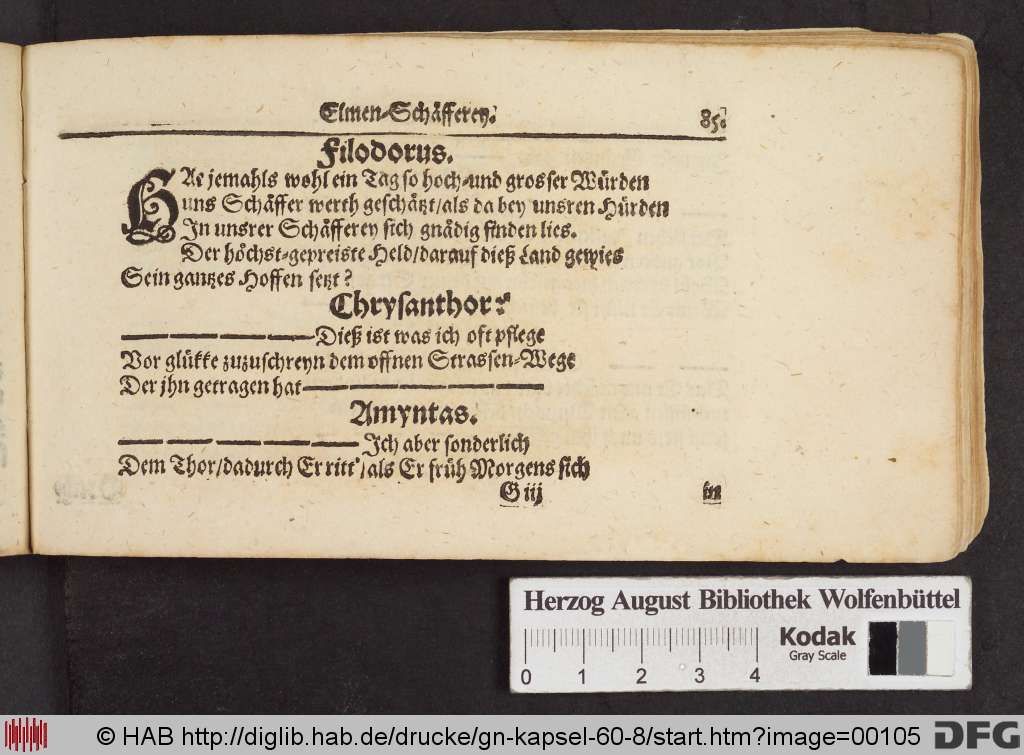 Elmen-Schäfferey. 85.
Filodorus.
HAt jemahls wohl ein Tag so hoch-und grosser Würden
uns Schäffer werth geschätzt/als da bey unsren Hürden
In unsrer Schäfferey sich gnädig finden lies.
Der höchst-gepreiste Held/darauf dieß Land gewies
Sein gantzes Hoffen setzt?
Chrysanthor.
— — — — Dieß ist was ich oft pflege
Vor glükke zuzuschreyn dem offnen Strassen-Wege
Der jhn getragen hat — — — — —
Amyntas.
— — — — — Ich aber sonderlich
Dem Thor/dadurch Er ritt/als Er früh Morgens sich
G iij in
Herzog August Bibliothek Wolfenbüttel
Kodak
Gray Scale
0 1 2 3 4
© HAB http://diglib.hab.de/drucke/gn-kapsel-60-8/start.htm?image=00105
DFG